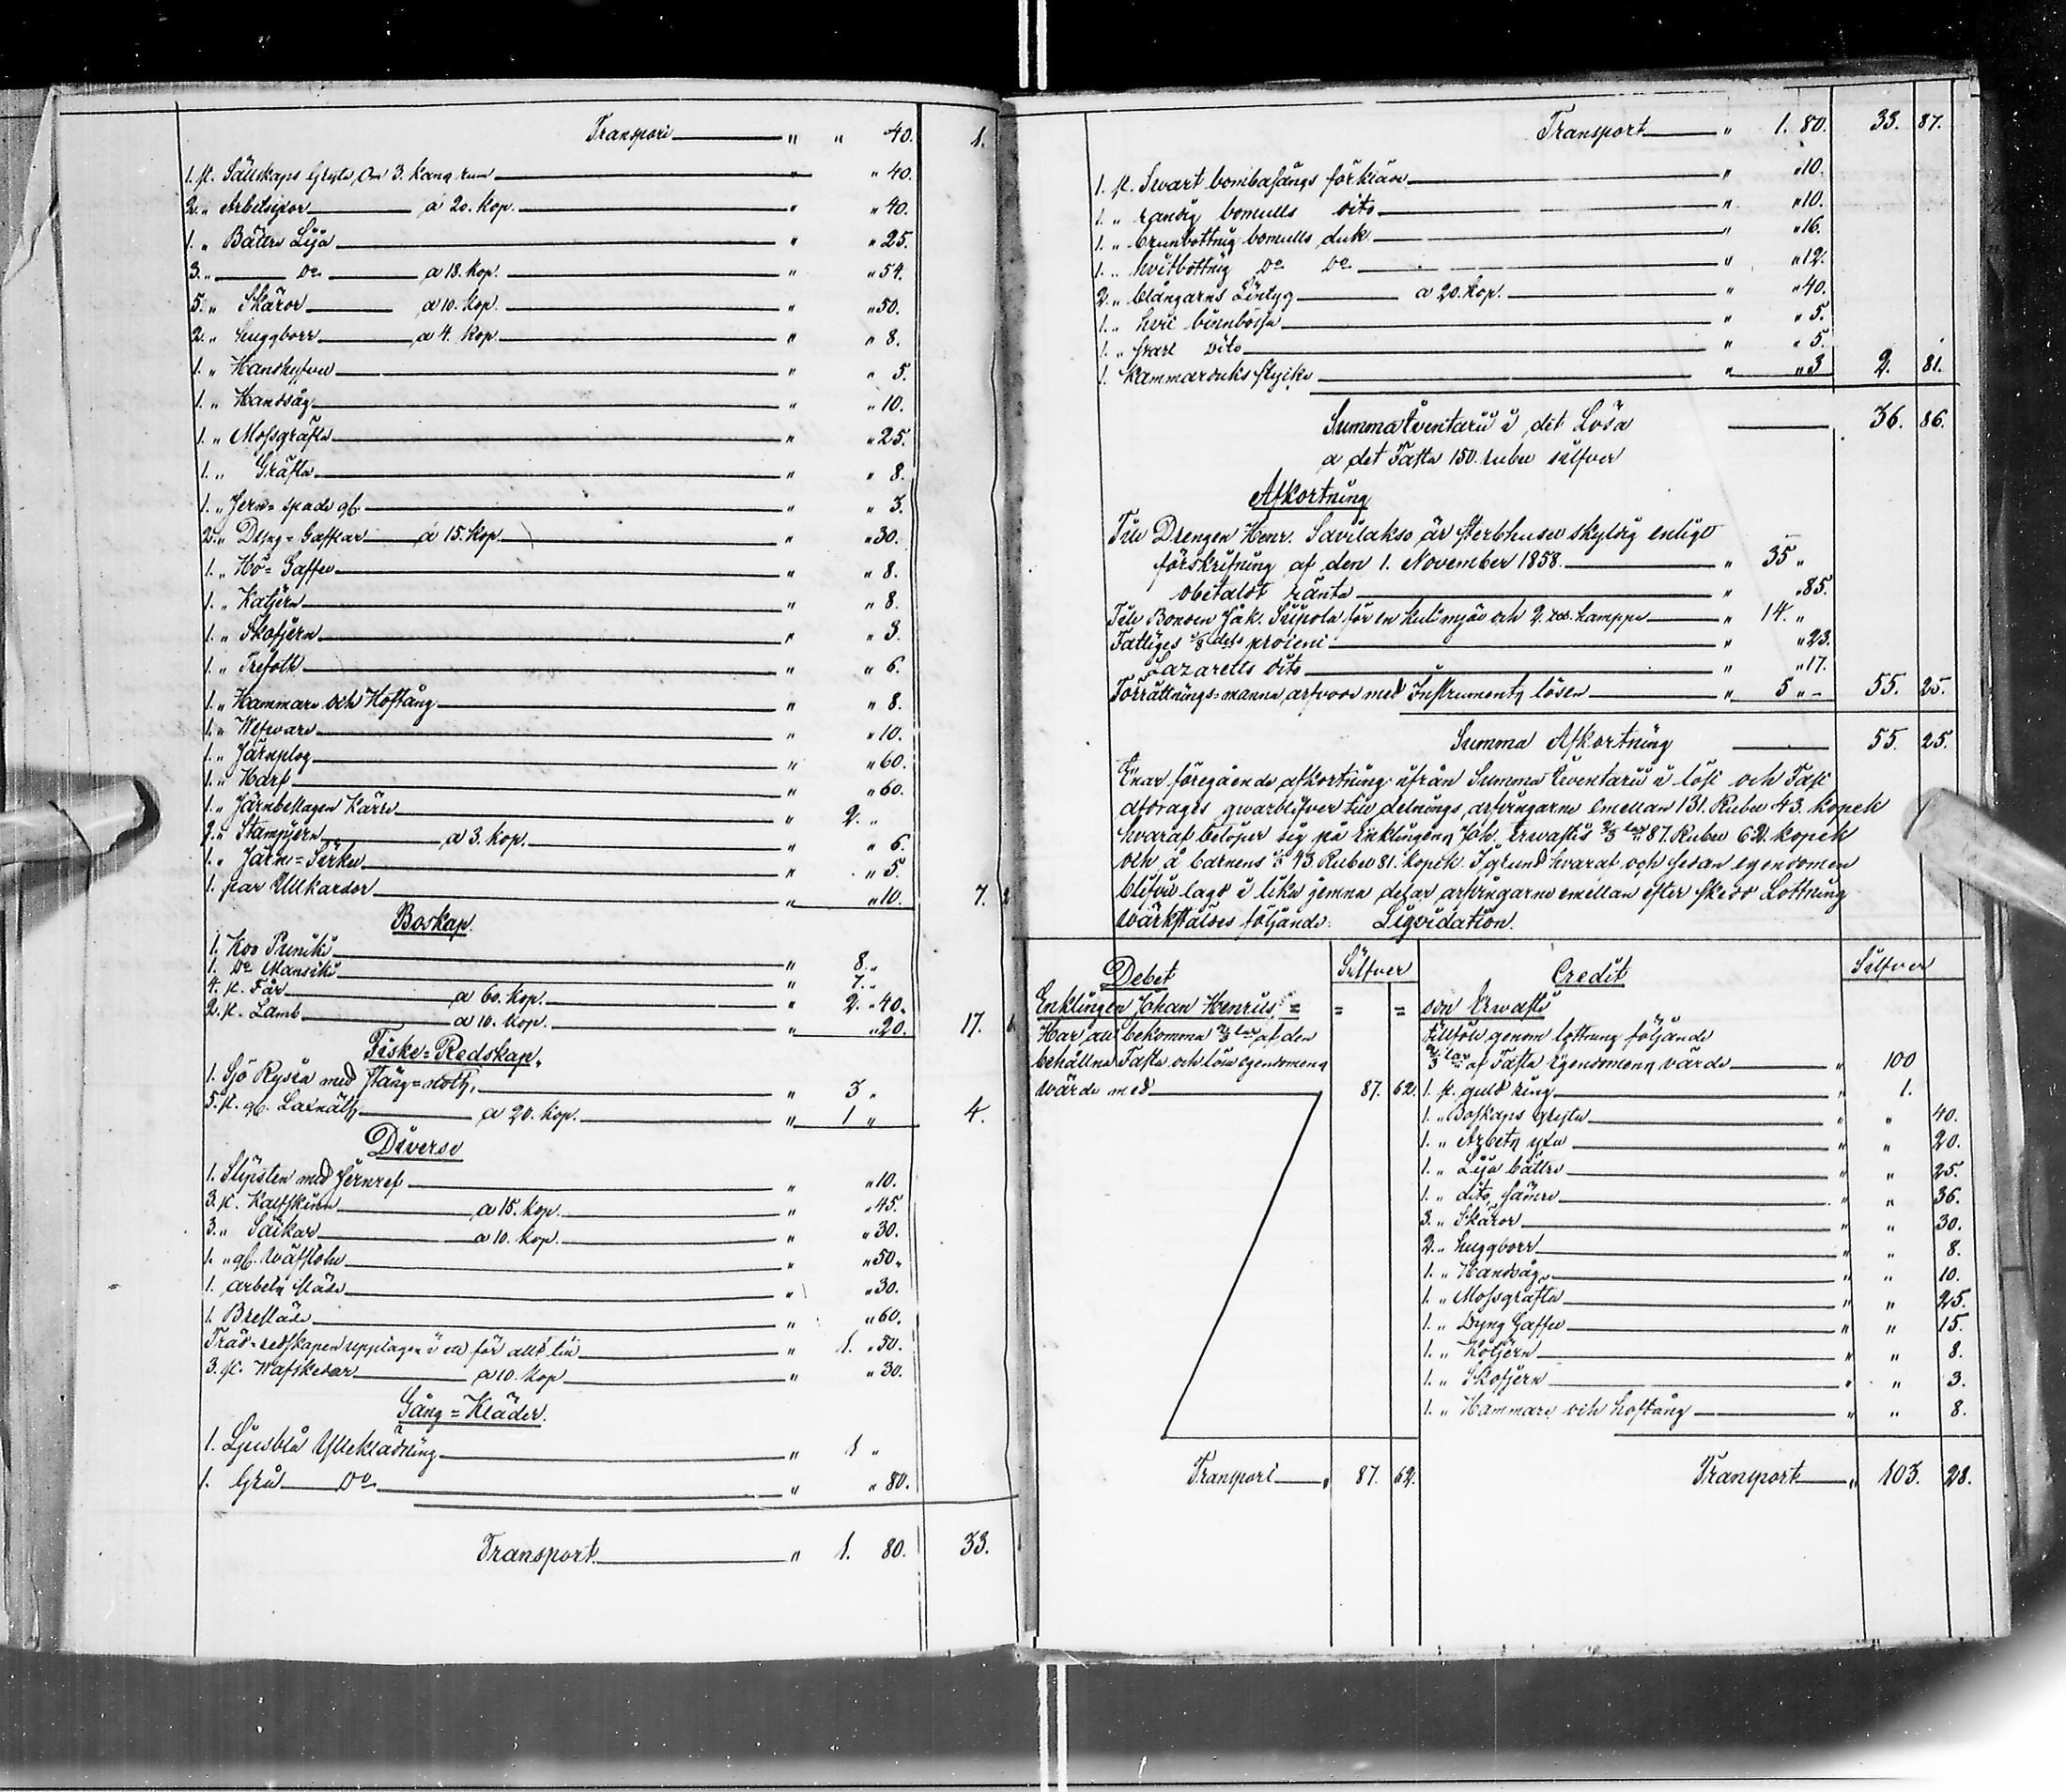 Transport " " 40. 1.
1. st. Sällskaps Gryta, om 3. kang rum " " 40.
2. " Arbetsyxor a 20. kop. " " 40.
1. " Bättre Lija " " 25.
3. " Do a 18. kop. " " 54.
5. " Skäror a 10. kop. " " 50.
2. " huggborr a 4. kop. " " 8.
1. " Handhyfvel " " 5.
1. " Handsåg " " 10.
1. " Mossgräfta " " 25.
1. " Gräfta " " 8.
1. " Jern-spade gl. " " 3.
2. " Dyng-Gafflar a 15. kop. " " 30.
1. " Hö-Gaffel " " 8.
1. " Katjern " " 8.
1. " Skofjern " " 3.
1. " Trefoth " " 6.
1. " Hammare och Hoftång " " 8.
1. " " " 10.
1. " Järnplog " " 60.
1. " Harf " " 60.
1. " Järnbeslagen Kärra " 2. "
2. " Stampjern a 3. kop. " " 6.
1. " Järn= " " 5.
1. par Ullkardor " " 10. 7. 2
Boskap.
1. Koo Punikki " 8. "
1. Do Mansiki " 7. "
4. st. Får a 60. kop. " 2. " 40.
2. st. Lamb a 10. kop. " " 20. 17. 6
Fiske=Redskap.
1. Sjö Ryssia med stäng=noth, " 3 "
5. st. gl. Laxnäth a 20. kop. " 1 " 4.
Diverse
1. Slijpsten med Jernvef " " 10.
3. st. Kalfskinn a 15. kop. " " 45.
3. " Säckar a 10. kop. " " 30.
1. " gl. Wäfstolar " " 50.
1. arbets släde " " 30.
1. Bresläde " " 60.
Träd=redskapen upptagen i ett för allt till " 1. " 50.
3. st. Wäfskedar a 10. kop " " 30.
Gång=Kläder.
1. Ljusblå Ylleklädning " 1 "
1. Grå Do " " 80.
Transport " 1. 80. 33.
Transport " 1. 80. 33. 87.
1. st. Swart bombasångs förkläde " " 10.
1. " randig bomulls dito " " 10.
1. " brunbottnig bomulls duk " " 16.
1. " hvitbottnig Do Do " " 12.
2. " blångarns Lintyg a 20. kop. " " 40.
1. " hvit " " 5.
1. " svart dito " " 5.
1. Kammarduks stycke " " 3 2. 81.
Summa Eventarii i det Lösa 36. 86.
a det Fasta 150. rubel silfver
Afkortning
Till Drengen Henr. Savilakso är sterbhuset skyldig enligt
förskrifning af den 1. November 1858. " 35 "
obetaldt ränta " " 85.
Till Bonden Jak. Suipola för en kull mjöl och 2. hamppa " 14. "
Fattiges 1/8 dels procent " " 23.
Lazaretts dito " " 17.
Förrättnings=manna arfvode med Instruments lösen " 5 " - 55. 25.
Summa Afkortning 55. 25.
Enär föregående afkortning ifrån Summa Eventarii i löst och Fast
afdrages qwarblifver till delnings, arfvingarne emellan 131. Rubel 43. kopek
hvaraf belöper sig på Enklingens Joh. Erwastis 2/3 lar 87. Rubel 62. kopek
och å barnens 1/3 43. Rubel 81. kopek. I grund hvaraf och sedan egendomen
blifvit lagd i lika jemna delar arfvingarne emellan efter skedd Lottning
wärkställdes följande: Liqvidation.
Debet Silfver Credit Silfver
Enklingen Johan Henrics = = = son Erwasti
Har att bekomma 2/3 lar af den tillföll genom lottning följande
behållna Fasta och lösa egendomens 2/3 lar af Fasta Egendomens värde " 100
wärde med 87. 62. 1. st. guld ring " 1.
1. " Boskaps Gryta " " 40.
1. " Arbets yxa " " 20.
1. " Lija bättre " " 25.
1. " dito, sämre " " 36.
3. " Skäror " " 30.
2. " huggborr " " 8.
1. " Handsåg " " 10.
1. " Mossgräfta " " 25.
1. " Dyng Gaffel " " 15.
1. " Katjern " " 8.
1. " Skofjern " " 3.
1. " Hammare och hoftång " " 8.
Transport " 87. 62. Transport " 103. 28.